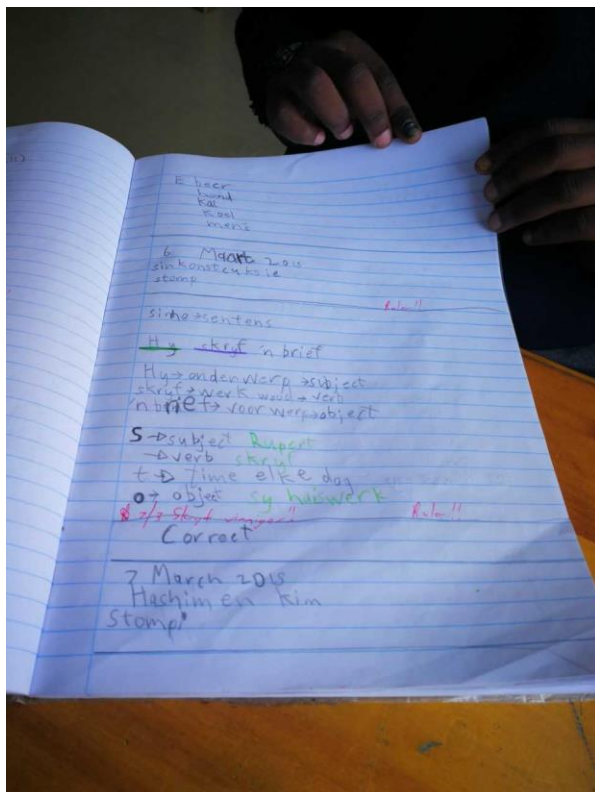 E beer
hond
kat
kool
mens
6 Maart 2015
sinkonstruksie
stomp
Ruler!!
sinne → sentens
Hy skryf 'n brief
Hy → onderwerp → subject
skryf → werk woord → verb
'n brief → voor werp → object
S → subject Rupert
→ verb skryf
t → Time elke dag
o → object sy huiswerk
7/3 Skryf vinniger!! Ruler!!
Correct
7 March 2015
Hashim en Kim
Stomp